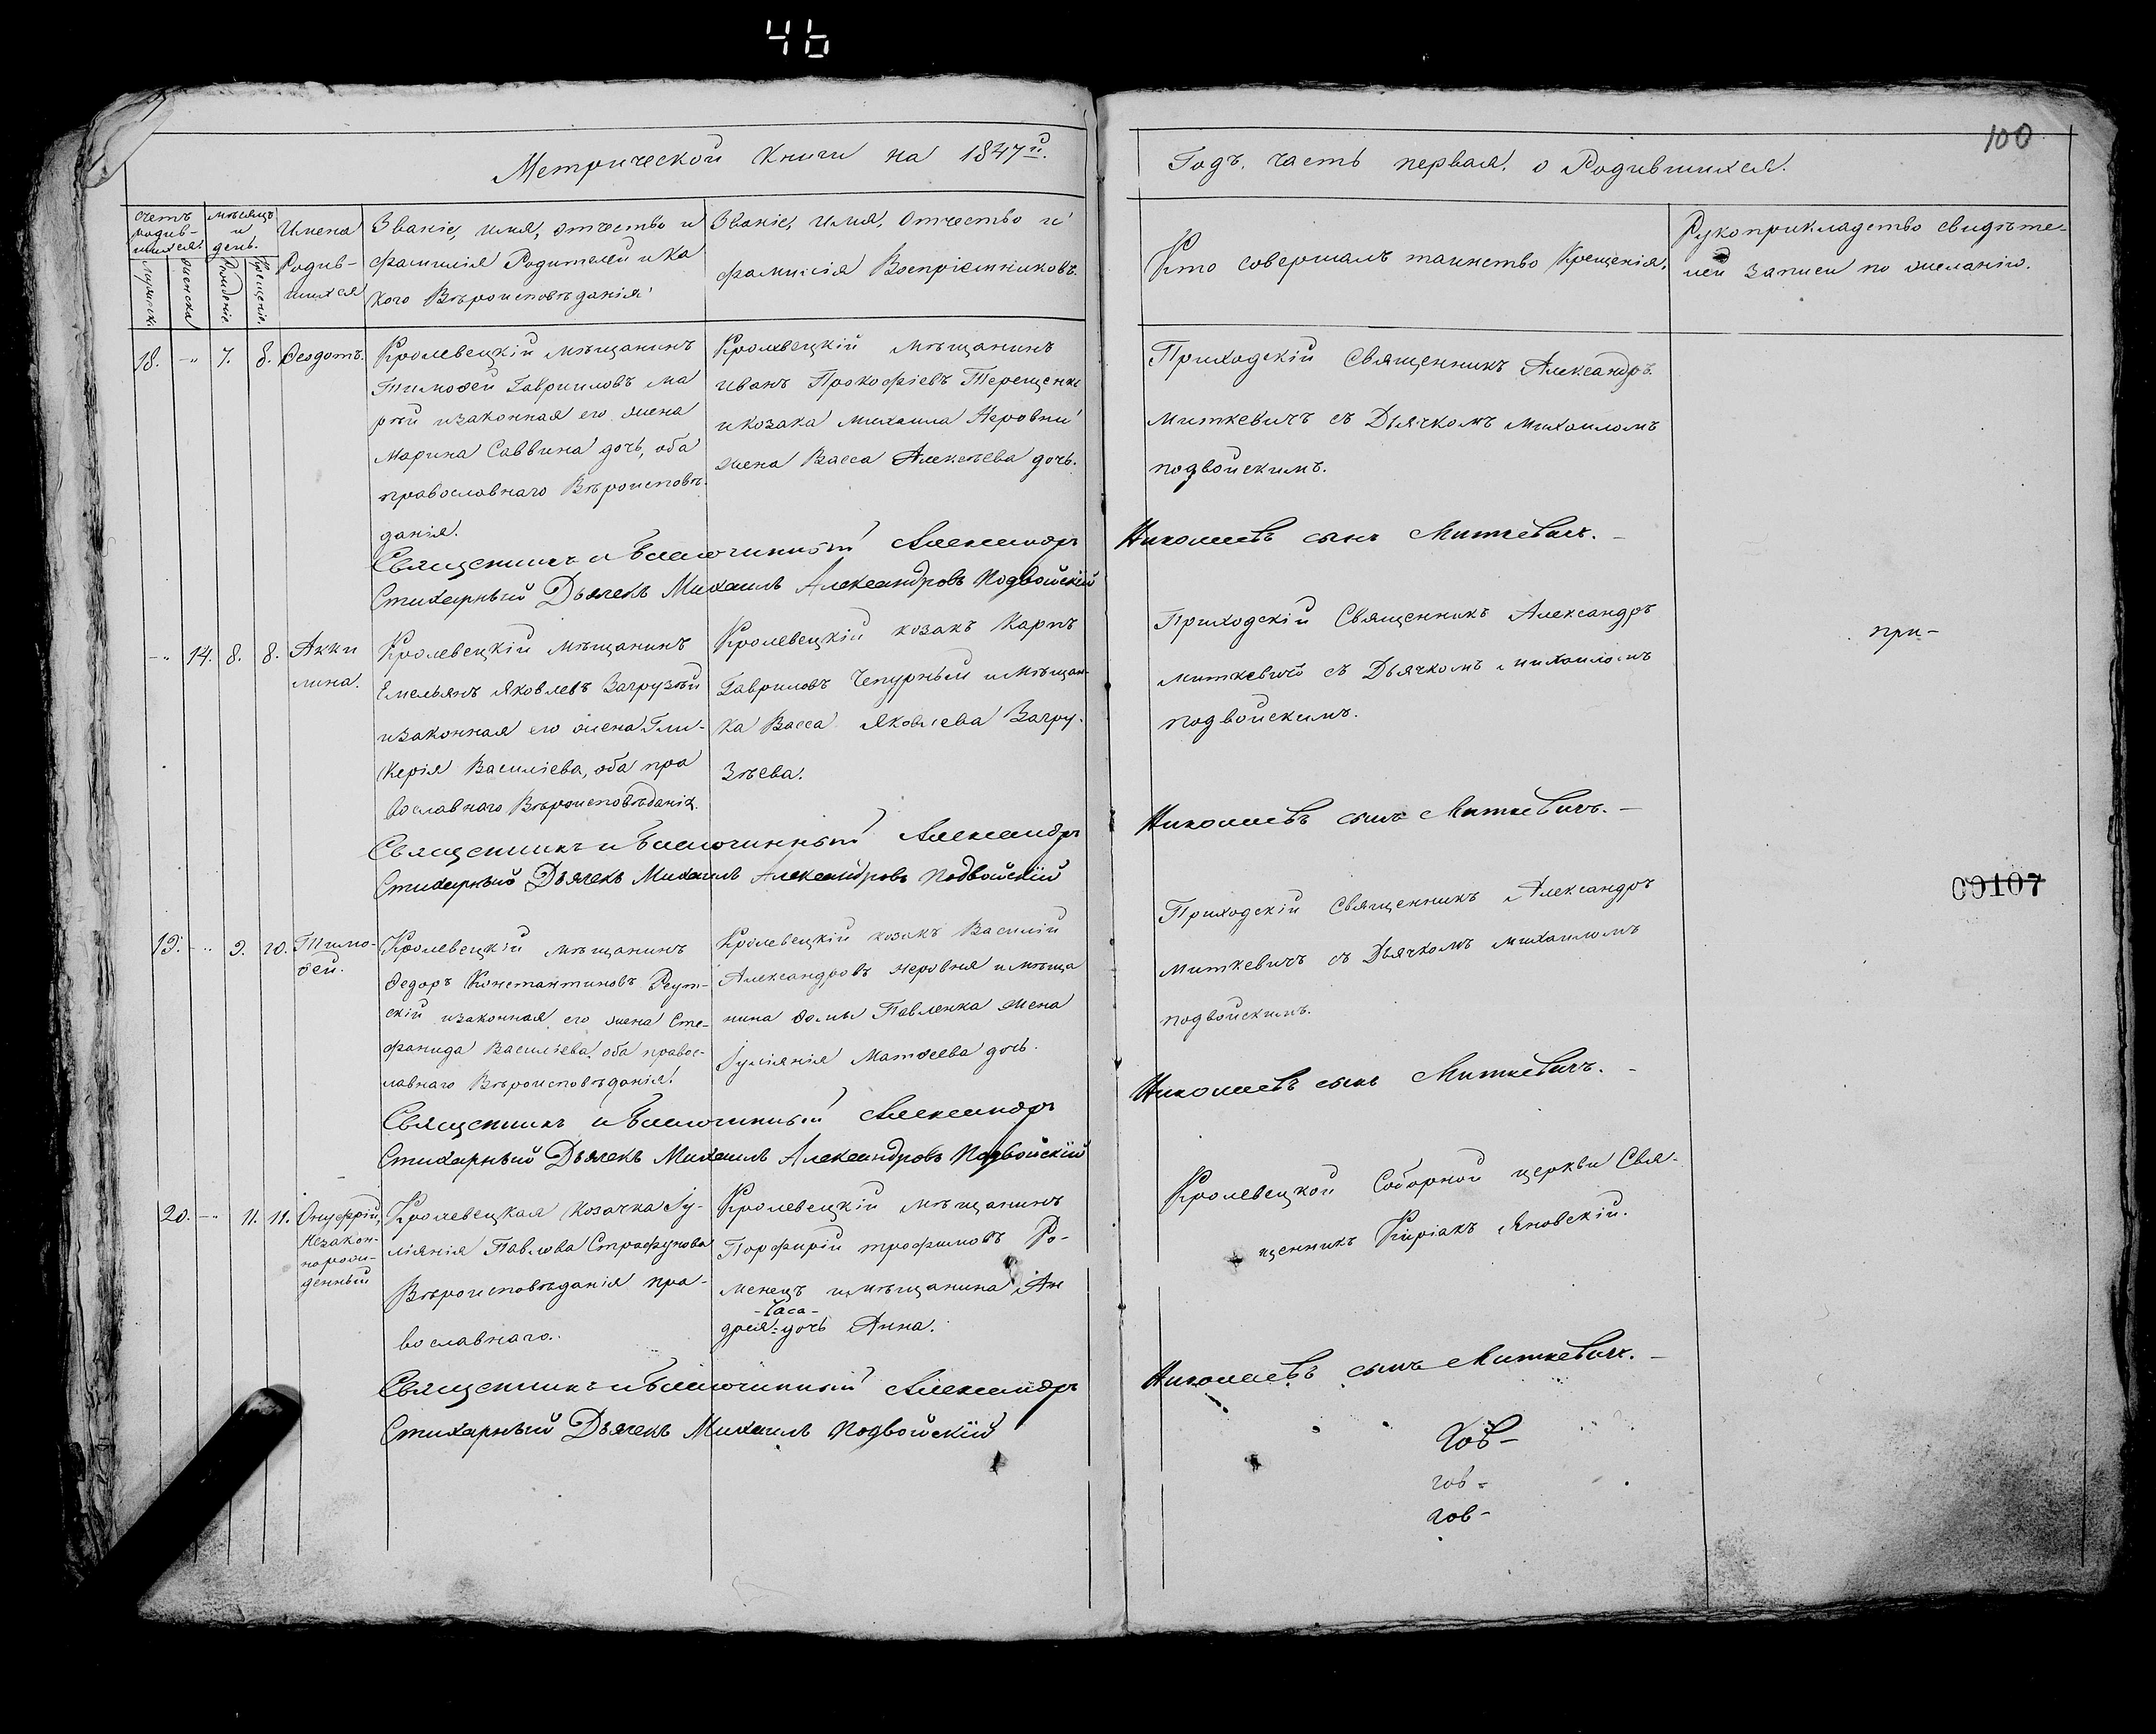 46
100
Метрической Книги на 1847й.
Годъ. часть первая. о Родившихся.
счетъ родив-шихся.
мѣсяцъ и день.
мужеск.
женска
Рожденіе.
Крещеніе.
Имена
Родив-
шихся
Званіе, имя, отчество и
фамилія Родителей и ка
кого Вѣроисповѣданія
Званіе, имя, отчество и
фамилія Воспріемниковъ.
Кто совершалъ таинство Крещенія.
Рукоприкладство свидѣте-
лей записи по желанію.
18. -„ 7. 8. Ѳеодотъ.
Кролевецкій мѣщанинъ
Тимоѳей Гавриловъ Ма
рѣй изаконная его жена
Марина Саввина дочь, оба
православнаго Вѣроисповѣ-
данія.
Кролевецкій мѣщанинъ
Иванъ Прокофіевъ Терещенко
икозака Михаила Неровни
жена Васса Алексѣева дочь.
Приходскій Священникъ Александръ
Миткевичъ съ Дьячкомъ Михаиломъ
подвойскимъ.
Священникъ и Благочинный Александръ Николаевъ сынъ Миткевичъ. -
Стихарный Дьячекъ Михаилъ Александровъ Подвойскій
-„ 14. 8. 8. Акки
лина.
Кролевецкій мѣщанинъ
Емельянъ Яковлевъ Загрузѣй
изаконная его жена Гли-
керія Василіева, оба пра
вославнаго Вѣроисповѣданія.
Кролевецкій козакъ Карпъ
Гавриловъ Чепурный имѣщан-
ка Васса Яковлева Загру-
зѣева.
Приходскій Священникъ Александръ
Миткевичъ съ Дьячкомъ Михаиломъ
подвойскимъ.
при-
Священникъ и Благочинный Александръ Николаевъ сынъ Миткевичъ. -
Стихарный Дьячекъ Михаилъ Александровъ Подвойскій
00107
19. -„ 9. 10. Тимо-
ѳей.
Кролевецкій мѣщанинъ
Ѳедоръ Константиновъ Реут-
скій изаконная его жена Сте-
фанида Василіева, оба правос-
лавнаго Вѣроисповѣданія.
Кролевецкій козакъ Василій
Александровъ Неровня имѣща
нина Ѳомы Павленка жена
Іуліянія Матѳеева дочь.
Приходскій Священникъ Александръ
Миткевичъ съ Дьячкомъ Михаиломъ
подвойскимъ.
Священникъ и Благочинный Александръ Николаевъ сынъ Миткевичъ. -
Стихарный Дьячекъ Михаилъ Александровъ Подвойскій
20. -„ 11. 11. Онуфрій,
Незакон-
норож-
денный
Кролевецкая Козачка Іу-
ліянія Павлова Страфунова
Вѣроисповѣданія пра-
вославнаго.
Кролевецкій мѣщанинъ
Порфирій трофимовъ Ро-
менецъ имѣщанина Ан
дрея дочь Анна.
Кролевецкой Соборной церкви Свя-
щенникъ Киріакъ Яновскій.
Священникъ и Благочинный Александръ Николаевъ сынъ Миткевичъ. -
Стихарный Дьячекъ Михаилъ Подвойскій